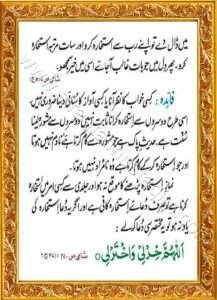 میں ڈال دے تو اپنے رب سے استخارہ کر و اور سات مرتبہ استخارہ
کرو، پھر دل میں جو بات غالب آجائے اسی میں خیر سمجھو۔
فائدہ: کسی خواب کا نظر آنا یا کسی آواز کا سنائی دینا ضروری نہیں
اسی طرح دوسروں سے استخارہ کرانا ثابت نہیں دوسروں سے مشورہ لینا
سنت ہے۔ حدیث پاک ہے جو مشورہ سے کام کرتا ہے نادم نہیں ہوتا
اور جو استخارہ کر کے کام کرتا ہے وہ نامراد نہیں ہوتا۔
نماز استخارہ پڑھنے کا موقع نہ ہو اور جلدی سے کسی امر میں استخارہ
کرنا ہے تو صرف دعائے استخارہ کافی ہے اور اگر یہ دعا استخارہ کی
یاد نہ ہو تو یہ مختصر سی دعا کر لے:
اَللّٰهُمَّ خِرْ لِیْ وَاخْتَرْ لِیْ